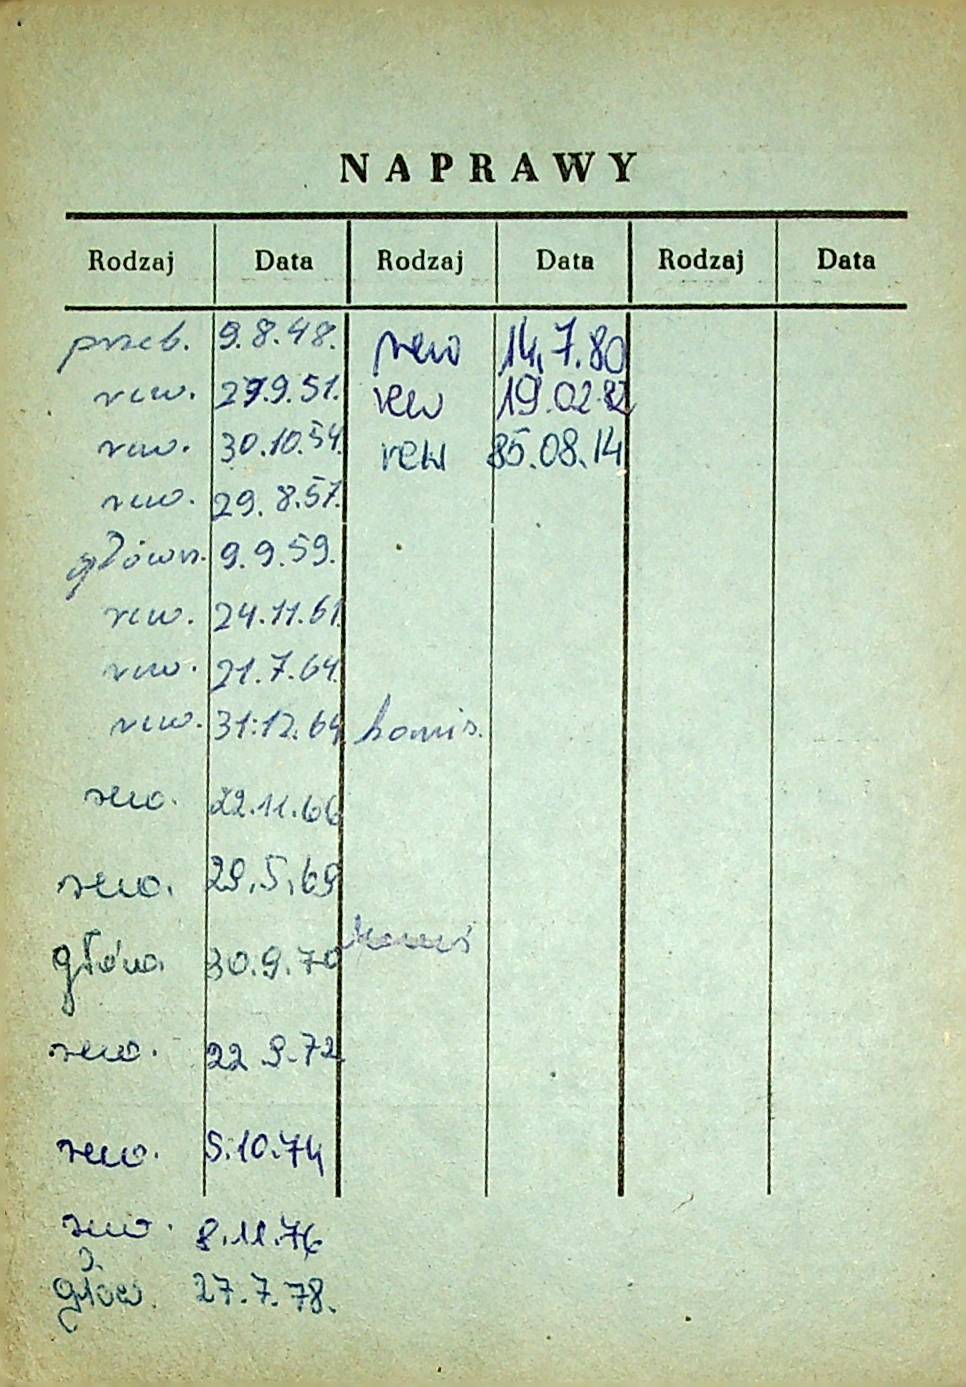 NAPRAWY
Rodzaj Data Rodzaj Data Rodzaj Data
przeb. 9.8.48. rew 14.7.80
rew. 27.9.51. rew 19.02.82
rew. 30.10.54. rew 85.08.14
rew. 29.8.57.
główn. 9.9.59.
rew. 24.11.61.
rew. 21.7.64.
rew. 31.12.64 komis.
rew. 22.11.66
rew. 29.5.69
główn. 30.9.70 komis
rew. 22.9.72
rew. 5.10.74
rew. 8.11.76
głów. 27.7.78.